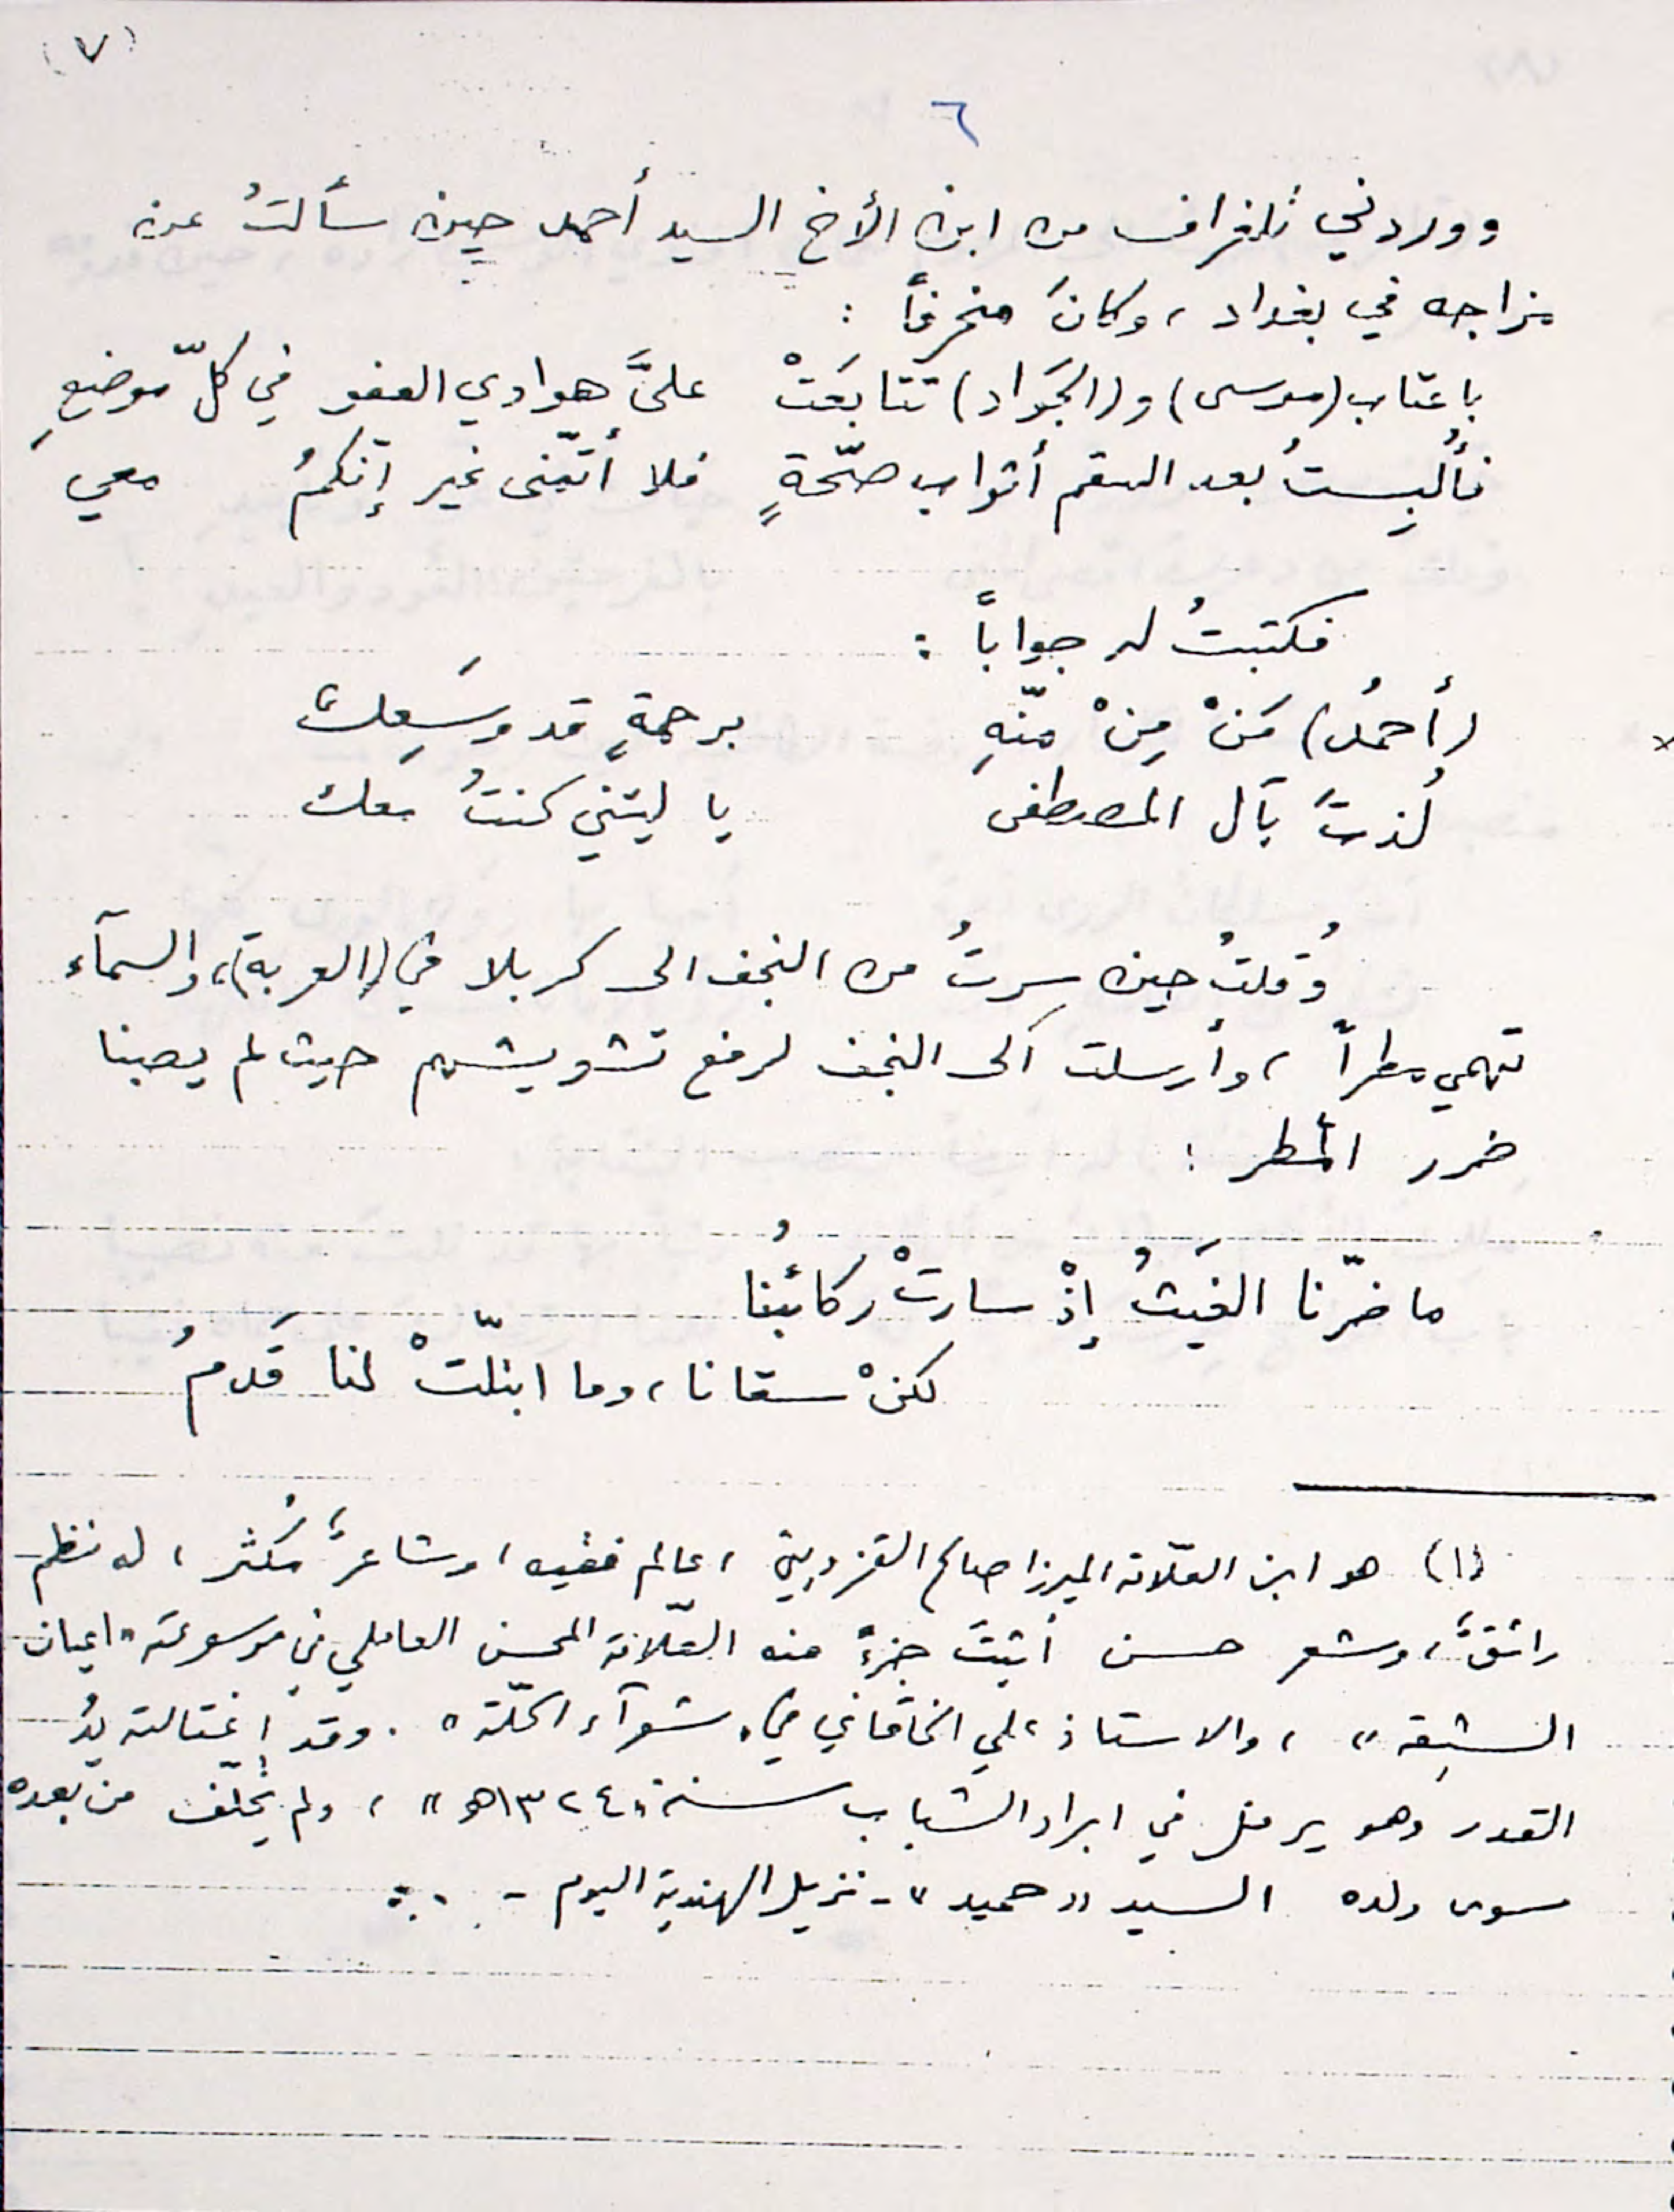 (٧)
٦
ووردني تلغراف من ابن الأخ السيد أحمد حين سألتُ عن
مزاجه في بغداد، وكانَ منحرفاً :
باعتاب (موسى) و(الجَواد) تتابَعَتْ علىَّ هوادي العفو في كلّ موضعٍ
فأُلبِستُ بعد السقم أثواب صحّةٍ فلا أتمنّى غير إنّكمُ معي
فكتبتُ له جواباً :
(أحمدُ) مَنْ مِنْ منّهِ برحمةٍ قد وسَعِك
لُذتَ بآل المصطفى يا ليتني كنتُ معك
وُقلتُ حين سِرتُ من النجف الى كربلا في (العربة)، والسمآء
تهمي مطراً ، وأرسلت الى النجف لرفع تشويشهم حيث لم يصبنا
ضرر المطر :
ما ضرّنا الغَيثُ إذْ سارتْ ركائبُنا
لكنْ سقانا، وما ابتلّتْ لنا قَدمُ
(١) هو ابن العلّامة الميرزا صالح القزويني ، عالم فقيه ، وشاعرٌ مُكثر ، له نظم
رائقٌ، وشعر حسن أثبتَ جزءً منه العلّامة المحسن العاملي في موسوعته "اعيان
الشيعة" ، والاستاذ علي الخاقاني في "شعرآء الحلّة" . وقد إغتالته يدُ
القدر وهو يرفل في ابراد الشباب سنة "١٣٢٤هـ" ، ولم يُخلّف من بعده
سوى ولده السيد "حميد" - نزيل الهندية اليوم - .